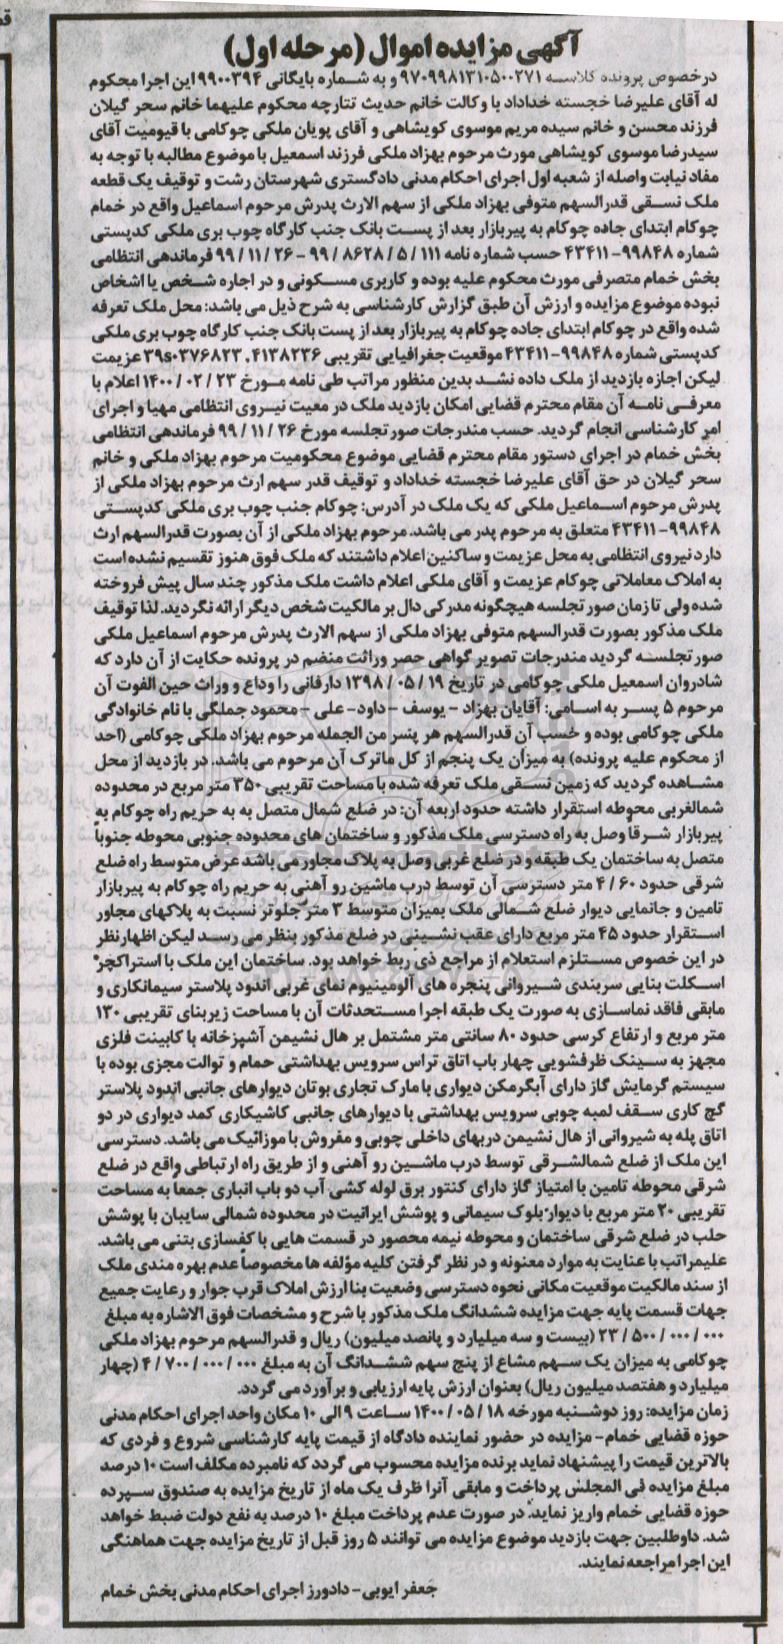 آگهی مزایده اموال (مرحله اول)
درخصوص پرونده کلاسه ۹۷۰۹۹۸۱۳۱۰۵۰۰۲۷۱ و به شماره بایگانی ۹۹۰۰۳۹۴ این اجرا محکوم
له آقای علیرضا خجسته خداداد با وکالت خانم حدیث تتارچه محکوم علیهما خانم سحر گیلان
فرزند محسن و خانم سیده مریم موسوی کویشاهی و آقای پویان ملکی چوکامی با قیومیت آقای
سیدرضا موسوی کویشاهی مورث مرحوم بهزاد ملکی فرزند اسمعیل با موضوع مطالبه با توجه به
مفاد نیابت واصله از شعبه اول اجرای احکام مدنی دادگستری شهرستان رشت و توقیف یک قطعه
ملک نسقی قدرالسهم متوفی بهزاد ملکی از سهم الارث پدرش مرحوم اسماعیل واقع در خمام
چوکام ابتدای جاده چوکام به پیربازار بعد از پست بانک جنب کارگاه چوب بری ملکی کدپستی
شماره ۹۹۸۴۸-۴۳۴۱۱ حسب شماره نامه ۱۱۱ / ۵ / ۸۶۲۸ / ۹۹ - ۲۶ / ۱۱ / ۹۹ فرماندهی انتظامی
بخش خمام متصرفی مورث محکوم علیه بوده و کاربری مسکونی و در اجاره شخص یا اشخاص
نبوده موضوع مزایده و ارزش آن طبق گزارش کارشناسی به شرح ذیل می باشد: محل ملک تعرفه
شده واقع در چوکام ابتدای جاده چوکام به پیربازار بعد از پست بانک جنب کارگاه چوب بری ملکی
کدپستی شماره ۹۹۸۴۸-۴۳۴۱۱ موقعیت جغرافیایی تقریبی ۴۱۳۸۲۳۶ , ۳۹s۰۳۷۶۸۲۳ عزیمت
لیکن اجازه بازدید از ملک داده نشد بدین منظور مراتب طی نامه مورخ ۲۳ / ۰۲ / ۱۴۰۰ اعلام با
معرفی نامه آن مقام محترم قضایی امکان بازدید ملک در معیت نیروی انتظامی مهیا و اجرای
امر کارشناسی انجام گردید. حسب مندرجات صورتجلسه مورخ ۲۶ / ۱۱ / ۹۹ فرماندهی انتظامی
بخش خمام در اجرای دستور مقام محترم قضایی موضوع محکومیت مرحوم بهزاد ملکی و خانم
سحر گیلان در حق آقای علیرضا خجسته خداداد و توقیف قدر سهم ارث مرحوم بهزاد ملکی از
پدرش مرحوم اسماعیل ملکی که یک ملک در آدرس: چوکام جنب چوب بری ملکی کدپستی
۹۹۸۴۸-۴۳۴۱۱ متعلق به مرحوم پدر می باشد. مرحوم بهزاد ملکی از آن بصورت قدرالسهم ارث
دارد نیروی انتظامی به محل عزیمت و ساکنین اعلام داشتند که ملک فوق هنوز تقسیم نشده است
به املاک معاملاتی چوکام عزیمت و آقای ملکی اعلام داشت ملک مذکور چند سال پیش فروخته
شده ولی تا زمان صورتجلسه هیچگونه مدرکی دال بر مالکیت شخص دیگر ارائه نگردید. لذا توقیف
ملک مذکور بصورت قدرالسهم متوفی بهزاد ملکی از سهم الارث پدرش مرحوم اسماعیل ملکی
صورتجلسه گردید مندرجات تصویر گواهی حصر وراثت منضم در پرونده حکایت از آن دارد که
شادروان اسمعیل ملکی چوکامی در تاریخ ۱۹ / ۰۵ / ۱۳۹۸ دارفانی را وداع و وراث حین الفوت آن
مرحوم ۵ پسر به اسامی: آقایان بهزاد - یوسف - داود - علی - محمود جملگی با نام خانوادگی
ملکی چوکامی بوده و حسب آن قدرالسهم هر پسر من الجمله مرحوم بهزاد ملکی چوکامی (احد
از محکوم علیه پرونده) به میزان یک پنجم از کل ماترک آن مرحوم می باشد. در بازدید از محل
مشاهده گردید که زمین نسقی ملک تعرفه شده با مساحت تقریبی ۳۵۰ متر مربع در محدوده
شمالغربی محوطه استقرار داشته حدود اربعه آن: در ضلع شمال متصل به به حریم راه چوکام به
پیربازار شرقاً وصل به راه دسترسی ملک مذکور و ساختمان های محدوده جنوبی محوطه جنوباً
متصل به ساختمان یک طبقه و در ضلع غربی وصل به پلاک مجاور می باشد عرض متوسط راه ضلع
شرقی حدود ۶۰ / ۴ متر دسترسی آن توسط درب ماشین رو آهنی به حریم راه چوکام به پیربازار
تامین و جانمایی دیوار ضلع شمالی ملک بمیزان متوسط ۳ متر جلوتر نسبت به پلاکهای مجاور
استقرار حدود ۴۵ متر مربع دارای عقب نشینی در ضلع مذکور بنظر می رسد لیکن اظهارنظر
در این خصوص مستلزم استعلام از مراجع ذی ربط خواهد بود. ساختمان این ملک با استراکچر
اسکلت بنایی سربندی شیروانی پنجره های آلومینیوم نمای غربی اندود پلاستر سیمانکاری و
مابقی فاقد نماسازی به صورت یک طبقه اجرا مستحدثات آن با مساحت زیربنای تقریبی ۱۳۰
متر مربع و ارتفاع کرسی حدود ۸۰ سانتی متر مشتمل بر هال نشیمن آشپزخانه با کابینت فلزی
مجهز به سینک ظرفشویی چهار باب اتاق تراس سرویس بهداشتی حمام و توالت مجزی بوده با
سیستم گرمایش گاز دارای آبگرمکن دیواری با مارک تجاری بوتان دیوارهای جانبی اندود پلاستر
گچ کاری سقف لمبه چوبی سرویس بهداشتی با دیوارهای جانبی کاشیکاری کمد دیواری در دو
اتاق پله به شیروانی از هال نشیمن دربهای داخلی چوبی و مفروش با موزائیک می باشد. دسترسی
این ملک از ضلع شمالشرقی توسط درب ماشین رو آهنی و از طریق راه ارتباطی واقع در ضلع
شرقی محوطه تامین با امتیاز گاز دارای کنتور برق لوله کشی آب دو باب انباری جمعاً به مساحت
تقریبی ۲۰ متر مربع با دیوار بلوک سیمانی و پوشش ایرانیت در محدوده شمالی سایبان با پوشش
حلب در ضلع شرقی ساختمان و محوطه نیمه محصور در قسمت هایی با کفسازی بتنی می باشد.
علیمراتب با عنایت به موارد معنونه و در نظر گرفتن کلیه مؤلفه ها مخصوصاً عدم بهره مندی ملک
از سند مالکیت موقعیت مکانی نحوه دسترسی وضعیت بنا ارزش املاک قرب جوار و رعایت جمیع
جهات قسمت پایه جهت مزایده ششدانگ ملک مذکور با شرح و مشخصات فوق الاشاره به مبلغ
۰۰۰ / ۰۰۰ / ۵۰۰ / ۲۳ (بیست و سه میلیارد و پانصد میلیون) ریال و قدرالسهم مرحوم بهزاد ملکی
چوکامی به میزان یک سهم مشاع از پنج سهم ششدانگ آن به مبلغ ۰۰۰ / ۰۰۰ / ۷۰۰ / ۴ (چهار
میلیارد و هفتصد میلیون ریال) بعنوان ارزش پایه ارزیابی و برآورد می گردد.
زمان مزایده: روز دوشنبه مورخه ۱۸ / ۰۵ / ۱۴۰۰ ساعت ۹ الی ۱۰ مکان واحد اجرای احکام مدنی
حوزه قضایی خمام- مزایده در حضور نماینده دادگاه از قیمت پایه کارشناسی شروع و فردی که
بالاترین قیمت را پیشنهاد نماید برنده مزایده محسوب می گردد که نامبرده مکلف است ۱۰ درصد
مبلغ مزایده فی المجلس پرداخت و مابقی آنرا ظرف یک ماه از تاریخ مزایده به صندوق سپرده
حوزه قضایی خمام واریز نماید. در صورت عدم پرداخت مبلغ ۱۰ درصد به نفع دولت ضبط خواهد
شد. داوطلبین جهت بازدید موضوع مزایده می توانند ۵ روز قبل از تاریخ مزایده جهت هماهنگی
این اجرا مراجعه نمایند.
جعفر ایوبی - دادورز اجرای احکام مدنی بخش خمام